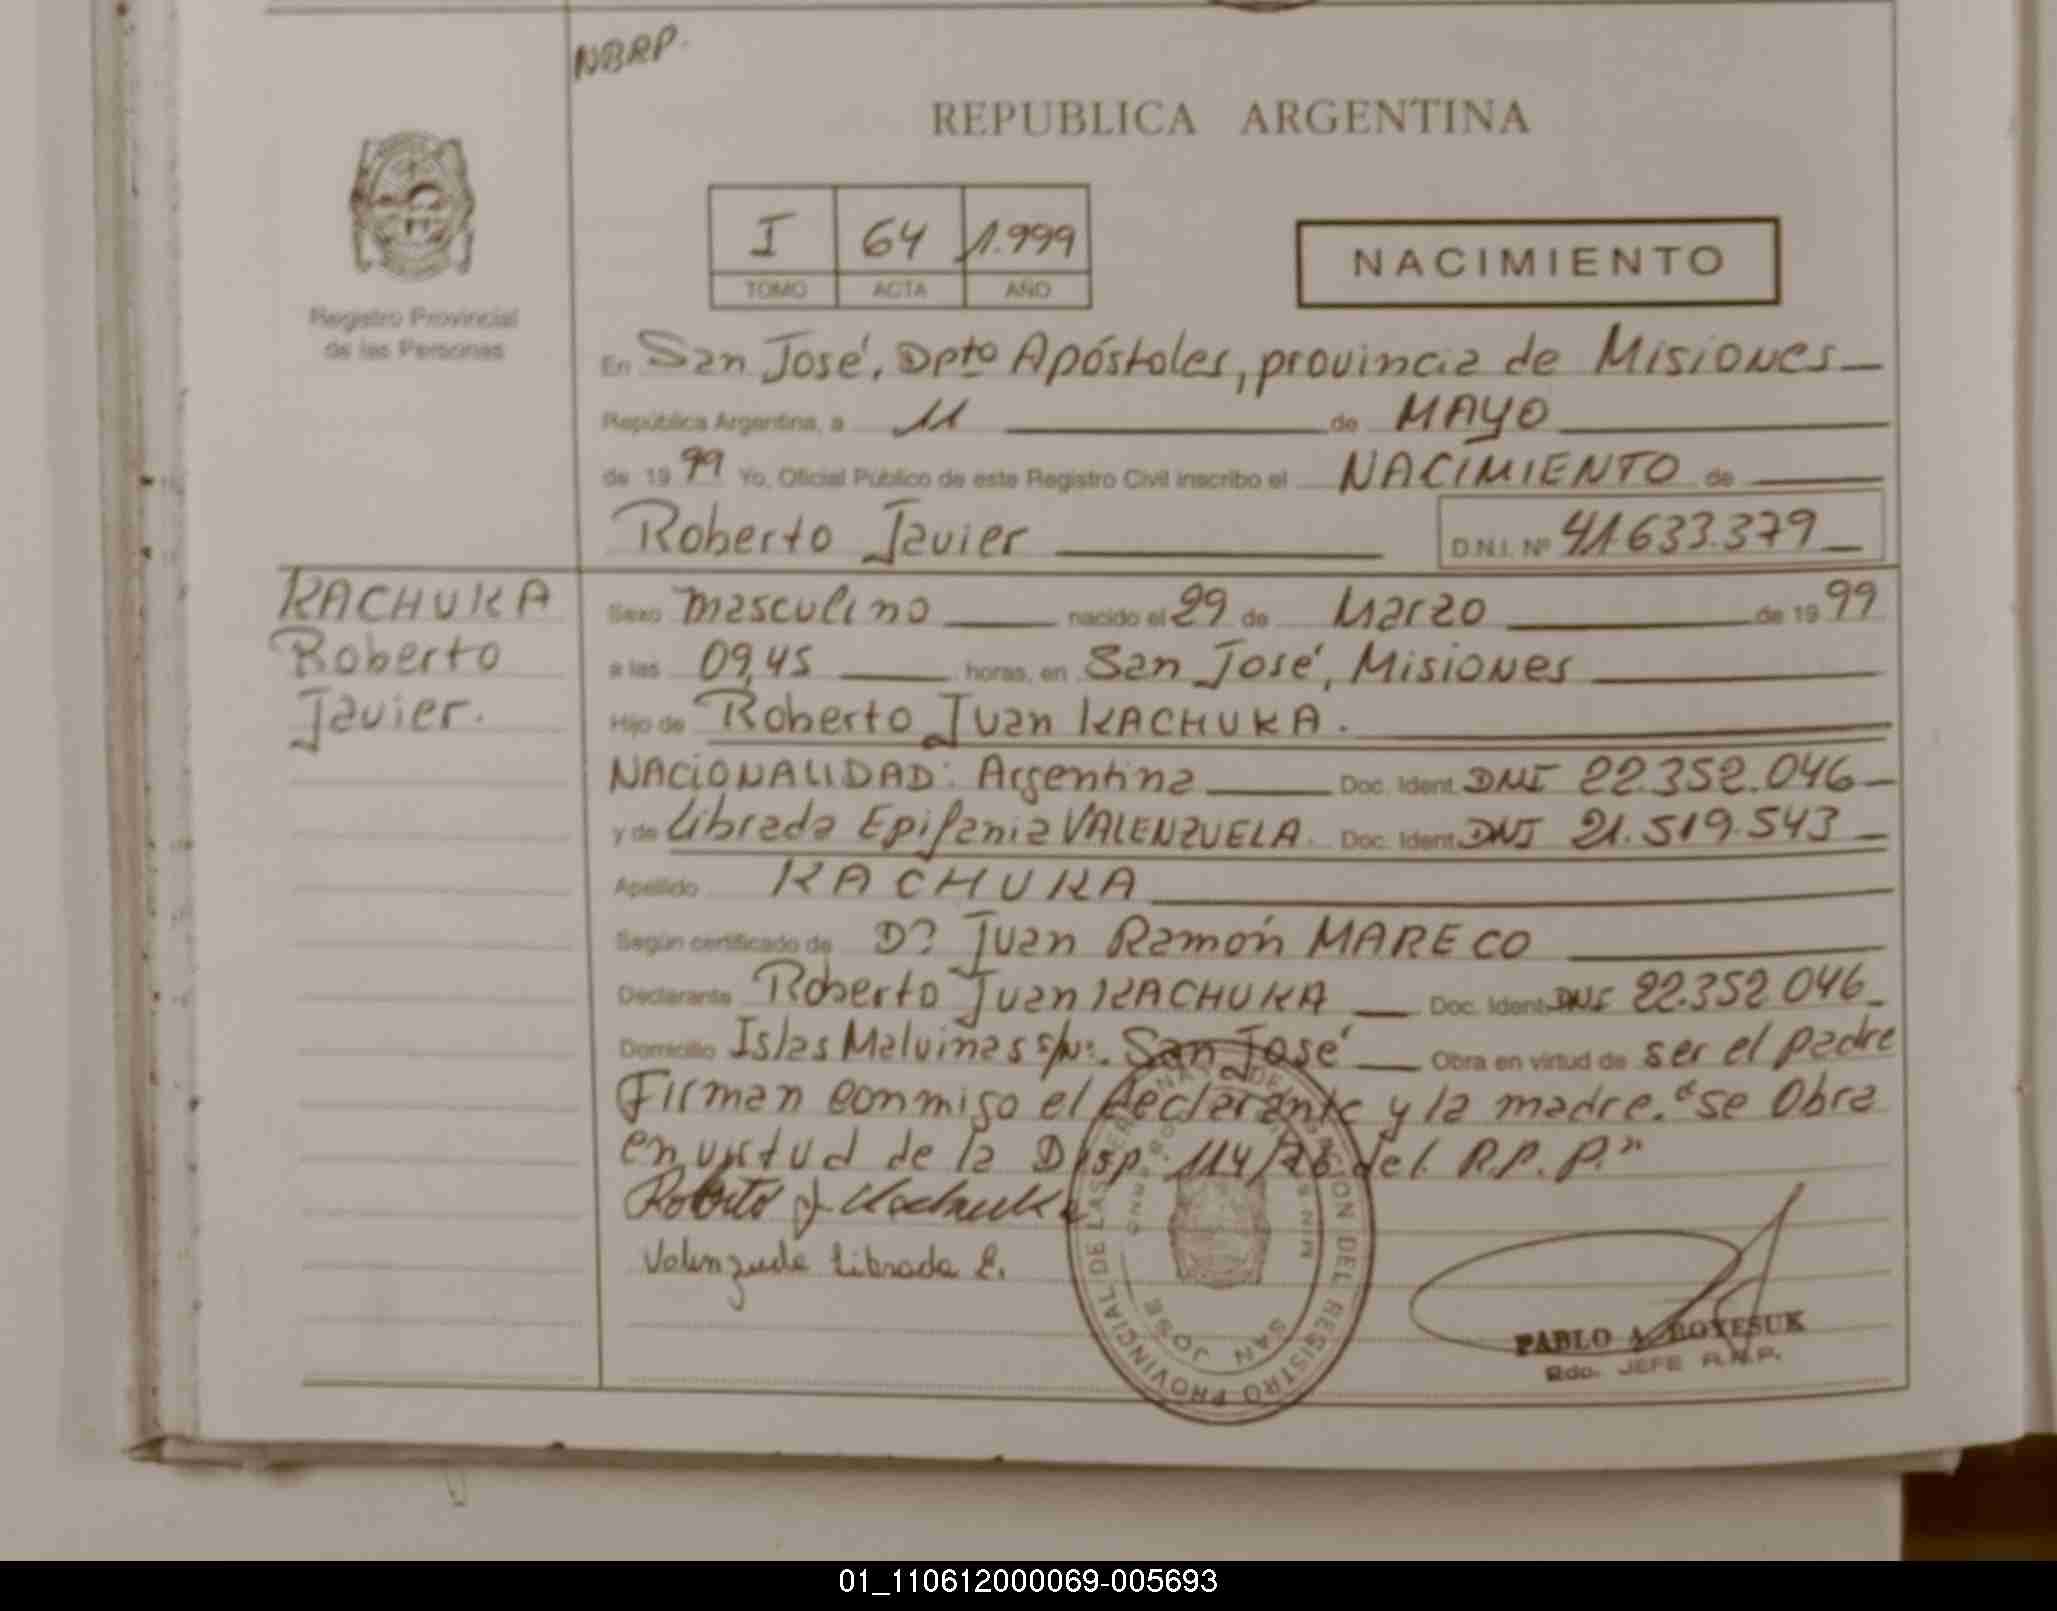 NBRP.
REPUBLICA ARGENTINA
I 64 1.999
TOMO ACTA AÑO
NACIMIENTO
Registro Provincial
de las Personas
En San José, Dpto Apóstoles, provincia de Misiones
República Argentina, a 11 de MAYO
de 19 99 Yo, Oficial Público de este Registro Civil inscribo el NACIMIENTO de
Roberto Javier D.N.I. Nº 41.633.379
KACHUKA
Roberto
Javier.
Sexo masculino nacido el 29 de Marzo de 19 99
a las 09,45 horas, en San José, Misiones
Hijo de Roberto Juan KACHUKA.
NACIONALIDAD: Argentina Doc. Ident. DNI 22.352.046
y de Librada Epifania VALENZUELA. Doc. Ident. DNI 21.519.543
Apellido KACHUKA
Según certificado de Dº Juan Ramón MARECO
Declarante Roberto Juan KACHUKA Doc. Ident. DNI 22.352.046
Domicilio Islas Malvinas s/Nº. San José Obra en virtud de ser el padre
Firman conmigo el declarante y la madre. "se Obra
en virtud de la Disp. 114/ del R.P.P."
Roberto J. Kachuka
Valenzuela Librada E.
PROVINCIAL DE LAS DEL REGISTRO
SAN JOSE
PABLO A. BOYESUK
Rdo. JEFE R.N.P.
01_110612000069-005693